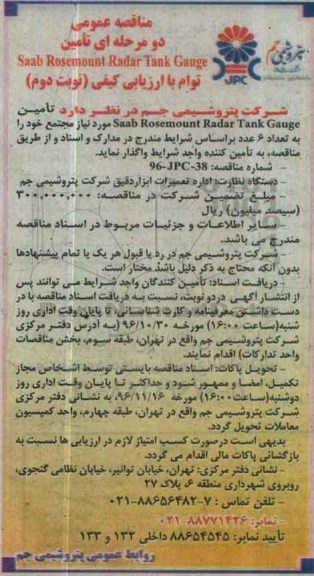 مناقصه عمومی
دو مرحله ای تأمین
Saab Rosemount Radar Tank Gauge
توام با ارزیابی کیفی (نوبت دوم)
پتروشیمی جم
JPC
شرکت پتروشیمی جم در نظر دارد تأمین
Saab Rosemount Radar Tank Gauge مورد نیاز مجتمع خود را
به تعداد ۶ عدد براساس شرایط مندرج در مدارک و اسناد و از طریق
مناقصه، به تأمین کننده واجد شرایط واگذار نماید.
شماره مناقصه: 96-JPC-38
- دستگاه نظارت: اداره تعمیرات ابزاردقیق شرکت پتروشیمی جم
- مبلغ تضمین شرکت در مناقصه: ۳۰۰,۰۰۰,۰۰۰
(سیصد میلیون) ریال
- سایر اطلاعات و جزئیات مربوط در اسناد مناقصه
مندرج می باشد.
- شرکت پتروشیمی جم در رد یا قبول هر یک یا تمام پیشنهادها
بدون آنکه محتاج به ذکر دلیل باشد مختار است.
- دریافت اسناد: تأمین کنندگان واجد شرایط می توانند پس
از انتشار آگهی در دو نوبت، نسبت به دریافت اسناد مناقصه با در
دست داشتن معرفینامه و کارت شناسایی، تا پایان وقت اداری روز
شنبه(ساعت ۱۶:۰۰) مورخه ۹۶/۱۰/۳۰ (به آدرس دفتر مرکزی
شرکت پتروشیمی جم واقع در تهران، طبقه سوم، بخش مناقصات
واحد تدارکات) اقدام نمایند.
- تحویل پاکات: اسناد مناقصه بایستی توسط اشخاص مجاز
تکمیل، امضا و ممهور شود و حداکثر تا پایان وقت اداری روز
دوشنبه(ساعت ۱۶:۰۰) مورخ ۹۶/۱۱/۱۶ به نشانی دفتر مرکزی
شرکت پتروشیمی جم واقع در تهران، طبقه چهارم، واحد کمیسیون
معاملات تحویل گردد.
بدیهی است درصورت کسب امتیاز لازم در ارزیابی ها نسبت به
بازگشائی پاکات مالی اقدام می گردد.
- نشانی دفتر مرکزی: تهران، خیابان توانیر، خیابان نظامی گنجوی،
روبروی شهرداری منطقه ۶، پلاک ۲۷
- تلفن تماس : ۷-۸۸۶۵۶۴۸۲-۰۲۱
- نمابر: ۸۸۷۷۱۴۲۶-۰۲۱
تأیید نمابر: ۸۸۶۵۴۵۴۵ داخلی ۱۳۲ و ۱۳۳
روابط عمومی پتروشیمی جم